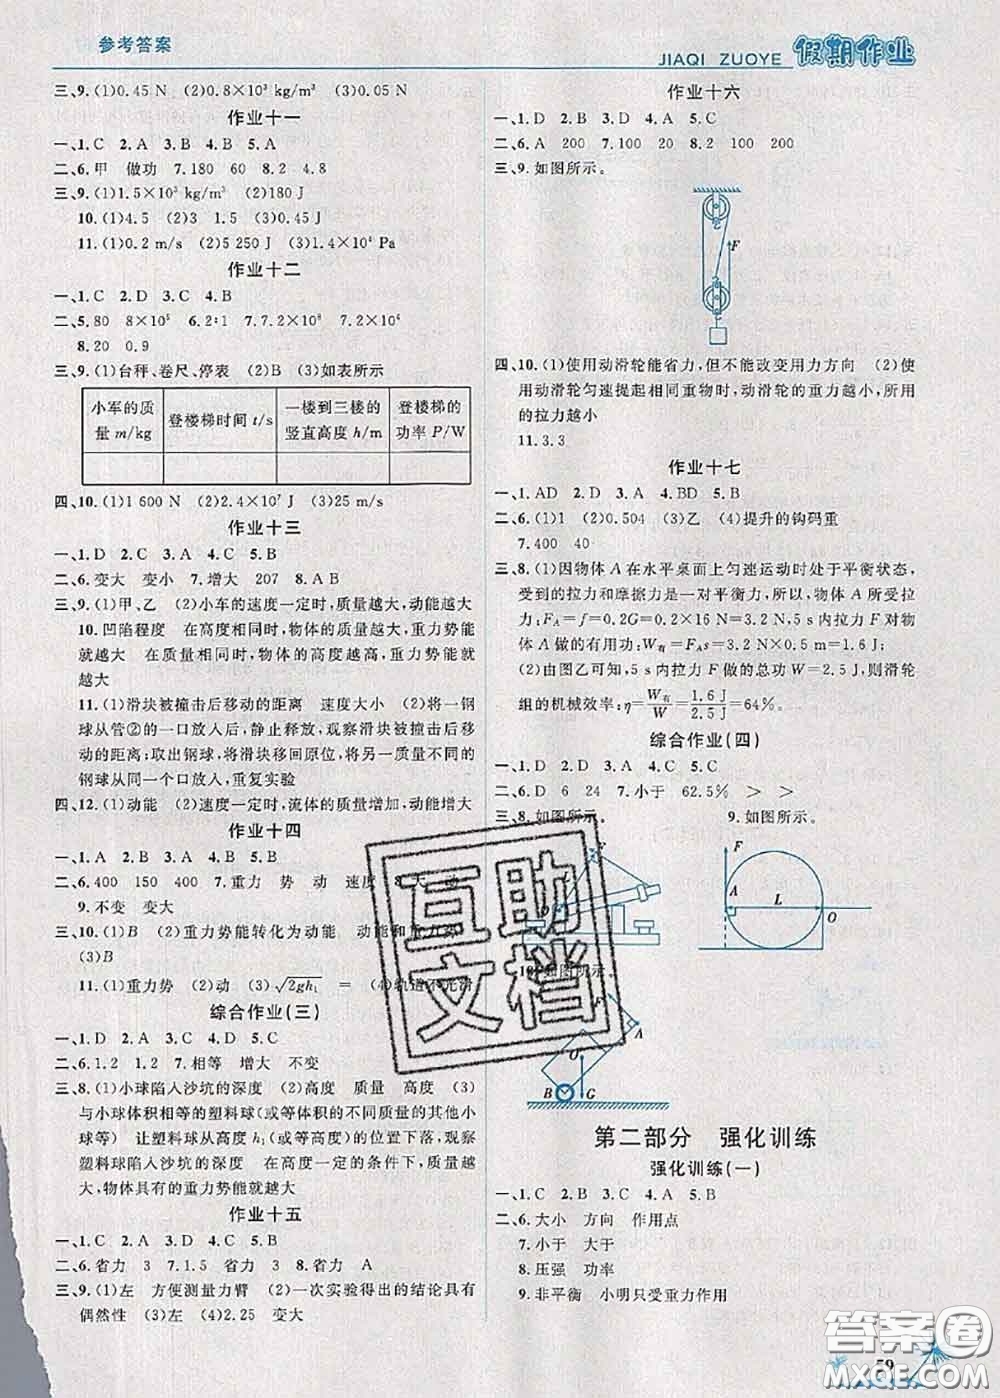 参考答案
JIAQI ZUOYE 假期作业
三、9.(1)0.45 N (2)0.8×10³ kg/m³ (3)0.05 N
作业十一
一、1.C 2.A 3.B 4.B 5.A
二、6.甲 做功 7.180 60 8.2 4.8
三、9.(1)1.5×10³ kg/m³ (2)180 J
10.(1)4.5 (2)3 1.5 (3)0.45 J
11.(1)0.2 m/s (2)5 250 J (3)1.4×10⁴ Pa
作业十二
一、1.C 2.D 3.C 4.B
二、5.80 8×10⁵ 6.2∶1 7.7.2×10⁸ 7.2×10⁴
8.20 0.9
三、9.(1)台秤、卷尺、停表 (2)B (3)如表所示
小军的质量 m/kg 登楼梯时间 t/s 一楼到三楼的竖直高度 h/m 登楼梯的功率 P/W
四、10.(1)1 600 N (2)2.4×10⁷ J (3)25 m/s
作业十三
一、1.D 2.C 3.A 4.C 5.B
二、6.变大 变小 7.增大 207 8.AB
三、9.(1)甲、乙 (2)小车的速度一定时,质量越大,动能越大
10.凹陷程度 在高度相同时,物体的质量越大,重力势能
就越大 在质量相同时,物体的高度越高,重力势能就越
大
11.(1)滑块被撞击后移动的距离 速度大小 (2)将一钢
球从管②的一口放入后,静止释放,观察滑块被撞击后移
动的距离;取出钢球,将滑块移回原位,将另一质量不同的
钢球从同一个口放入,重复实验
四、12.(1)动能 (2)速度一定时,流体的质量增加,动能增大
作业十四
一、1.D 2.A 3.A 4.C 5.C
二、6.400 150 400 7.重力 势 动 速度 8.大 动
9.不变 变大
三、10.(1)B (2)重力势能转化为动能 动能和重力势
(3)B
11.(1)重力势 (2)动 (3)√2gh₁ = (4)轨道不光滑
综合作业(三)
一、1.D 2.C 3.D 4.A 5.C
二、6.1.2 1.2 7.相等 增大 不变
三、8.(1)小球陷入沙坑的深度 (2)高度 质量 高度 (3)
与小球体积相等的塑料球(或等体积的不同质量的其他小
球等) 让塑料球从高度 h₁(或等高度)的位置下落,观察
塑料球陷入沙坑的深度 在高度一定的条件下,质量越
大,物体具有的重力势能就越大
作业十五
一、1.C 2.D 3.A 4.C 5.B
二、6.省力 3 7.1.5 省力 3 8.省力 A
三、9.(1)左 方便测量力臂 (2)一次实验得出的结论具有
偶然性 (3)左 (4)2.25 变大
作业十六
一、1.D 2.B 3.D 4.A 5.C
二、6.A 200 7.100 20 8.2 100 200
三、9.如图所示。
F
四、10.(1)使用动滑轮能省力,但不能改变用力方向 (2)使
用动滑轮匀速提起相同重物时,动滑轮的重力越小,所用
的拉力越小
11.3.3
作业十七
一、1.AD 2.D 3.A 4.BD 5.D
二、6.(1)1 (2)0.504 (3)乙 (4)提升的钩码重
7.400 40
三、8.(1)因物体 A 在水平桌面上匀速运动时处于平衡状态,
受到的拉力和摩擦力是一对平衡力,所以,物体 A 所受拉
力:F_A=f=0.2G=0.2×16 N=3.2 N,5 s 内拉力 F 对物
体 A 做的有用功:W有=F_As=3.2 N×0.5 m=1.6 J;
(2)由图乙可知,5 s 内拉力 F 做的总功 W=2.5 J,则滑轮
组的机械效率:η=W有/W=1.6 J/2.5 J=64%。
综合作业(四)
一、1.C 2.D 3.A 4.C 5.C
二、6.D 6 24 7.小于 62.5% > >
三、8.如图所示。 9.如图所示。
F
A L O
10.如图所示。
F A
O
B G
第二部分 强化训练
强化训练(一)
一、1.C 2.B 3.C 4.A 5.B
二、6.大小 方向 作用点
7.小于 大于
8.压强 功率
9.非平衡 小明只受重力作用
互助
文档
答案圈
MXQE.COM
59